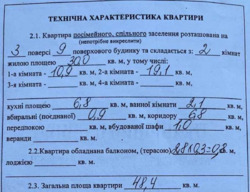 ТЕХНІЧНА ХАРАКТЕРИСТИКА КВАРТИРИ
2.1. Квартира посімейного, спільного заселення розташована на
(непотрібне викреслити)
3 поверсі 9 поверхового будинку та складається з 2 кімнат
жилою площею 30,0 кв. м, у тому числі:
1-а кімната - 10,9 кв. м, 2-а кімната - 19,1 кв. м,
3-я кімната - кв. м, 4-а кімната - кв. м,
кухні площею 6,8 кв. м, ванної кімнати 2,1 кв. м,
вбиральні (поєднаної) 0,9 кв. м, коридору 6,8 кв. м,
передпокою кв. м, вбудованої шафи 1,0 кв. м,
веранди кв. м.
2.2.Квартира обладнана балконом, (терасою) 2,8х0,3=0,8 кв. м,
лоджією кв. м.
2.3. Загальна площа квартири 48,4 кв. м.